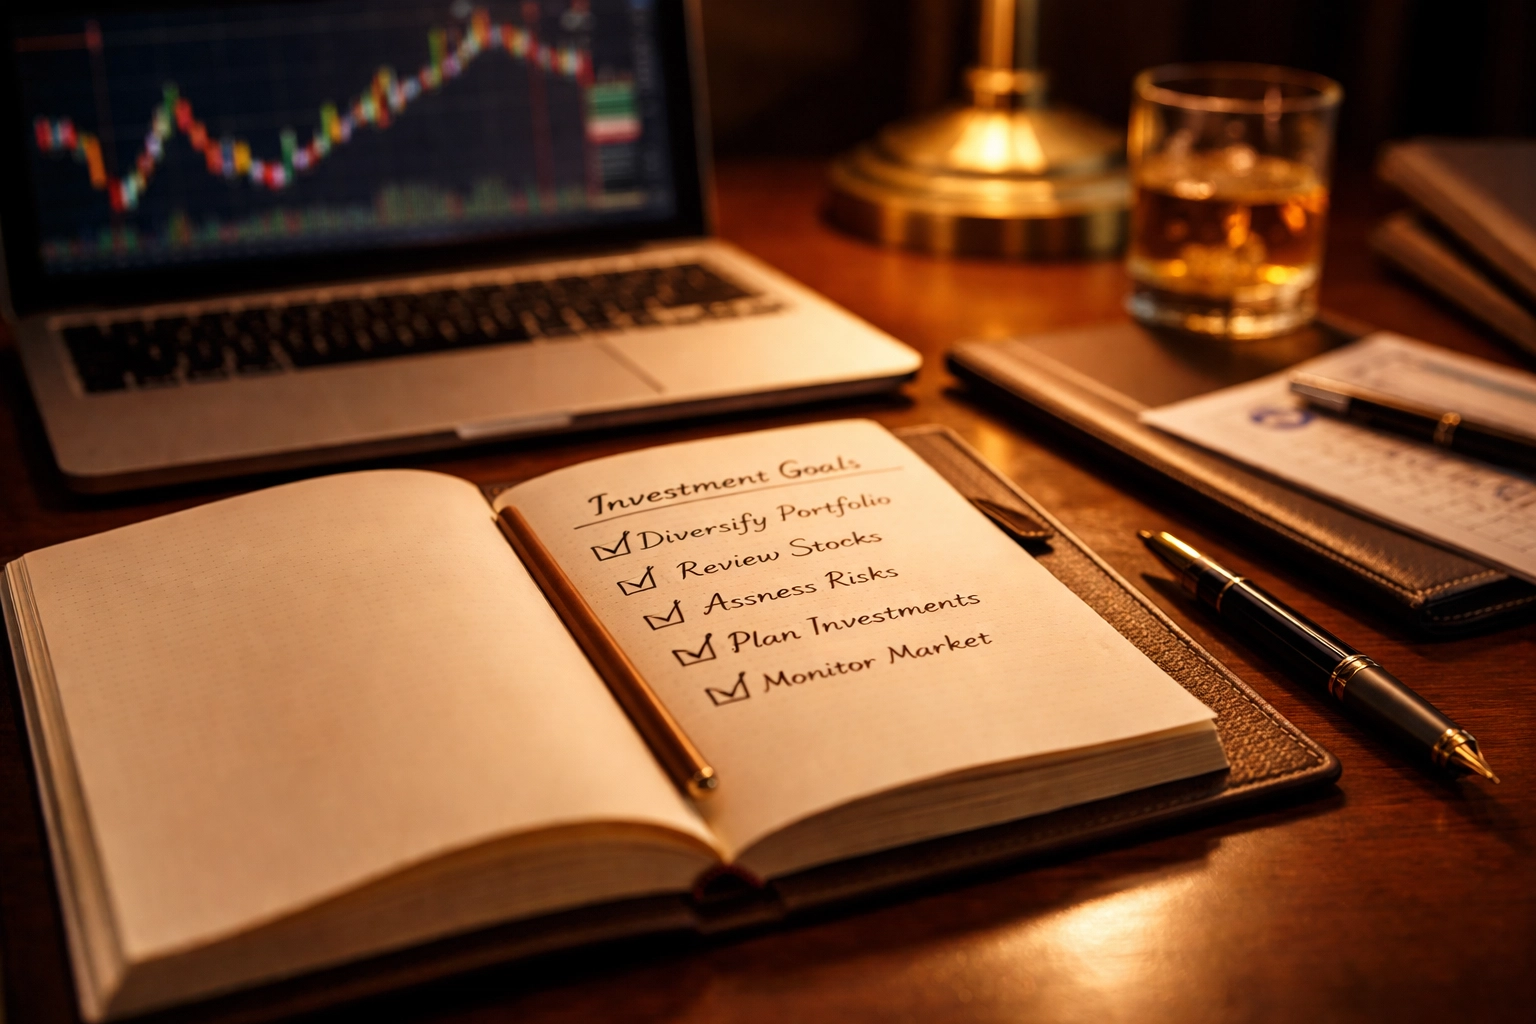 Investment Goals
Diversify Portfolio
Review Stocks
Assness Risks
Plan Investments
Monitor Market